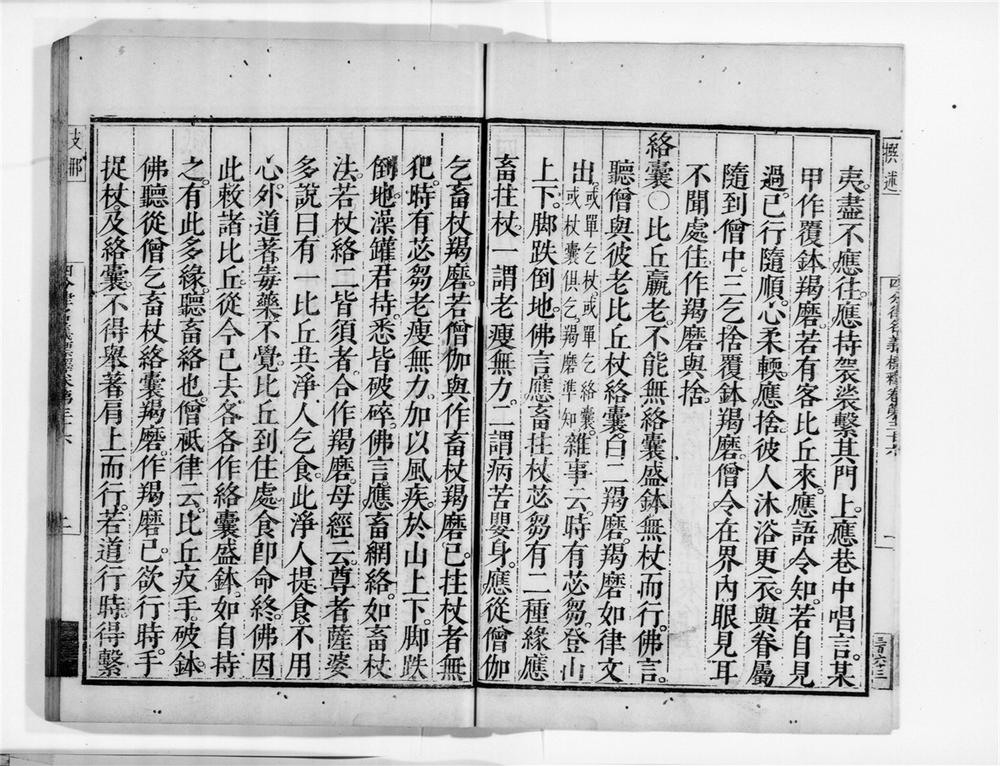 夷。盡不應往。應持袈裟繫其門上。應巷中唱言。某
甲作覆鉢羯磨。若有客比丘來。應語令知。若自見
過。已行隨順。心柔輭。應捨彼人沐浴更衣。與眷屬
隨到僧中。三乞捨覆鉢羯磨。僧令在界內眼見耳
不聞處住。作羯磨與捨。
絡囊〇比丘羸老。不能無絡囊盛鉢無杖而行。佛言。
聽僧與彼老比丘杖絡囊。白二羯磨。羯磨如律文
出。或單乞杖。或單乞絡囊。或杖囊俱乞。羯磨準知雜事云。時有苾芻。登山
上下。脚跌倒地。佛言。應畜拄杖。苾芻有二種緣應
畜拄杖。一謂老瘦無力。二謂病苦嬰身。應從僧伽
乞畜杖羯磨。若僧伽與作畜杖羯磨已。拄杖者無
犯。時有苾芻老瘦無力。加以風疾。於山上下。脚跌
倒地。澡鑵君持。悉皆破碎。佛言。應畜網絡。如畜杖
法。若杖絡二皆須者。合作羯磨。母經云。尊者薩婆
多說曰。有一比丘共淨人乞食。此淨人提食。不用
心。外道著毒藥。不覺。比丘到住處。食即命終。佛因
此敕諸比丘。從今已去。各各作絡囊盛鉢。如自持
之。有此多緣。聽畜絡也。僧祇律云。比丘皮手。破鉢。
佛聽從僧乞畜杖絡囊羯磨。作羯磨已。欲行時。手
捉杖及絡囊。不得舉著肩上而行。若道行時。得繫